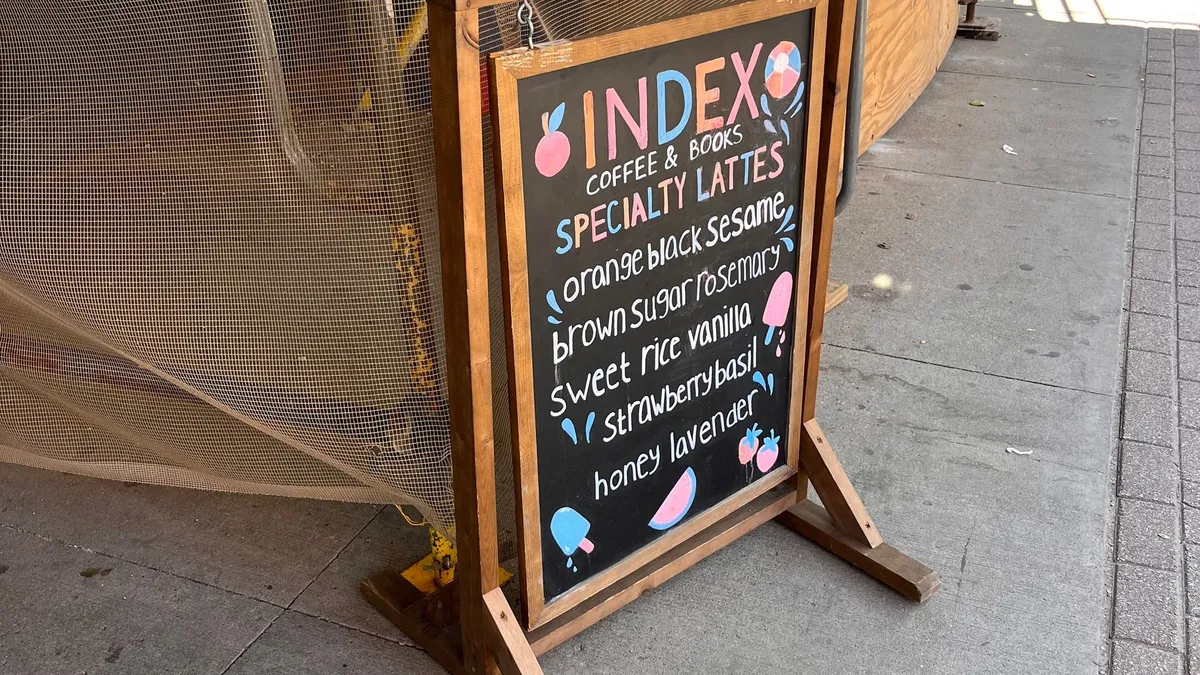 INDEX
COFFEE & BOOKS
SPECIALTY LATTES
orange black sesame
brown sugar rosemary
sweet rice vanilla
strawberry basil
honey lavender